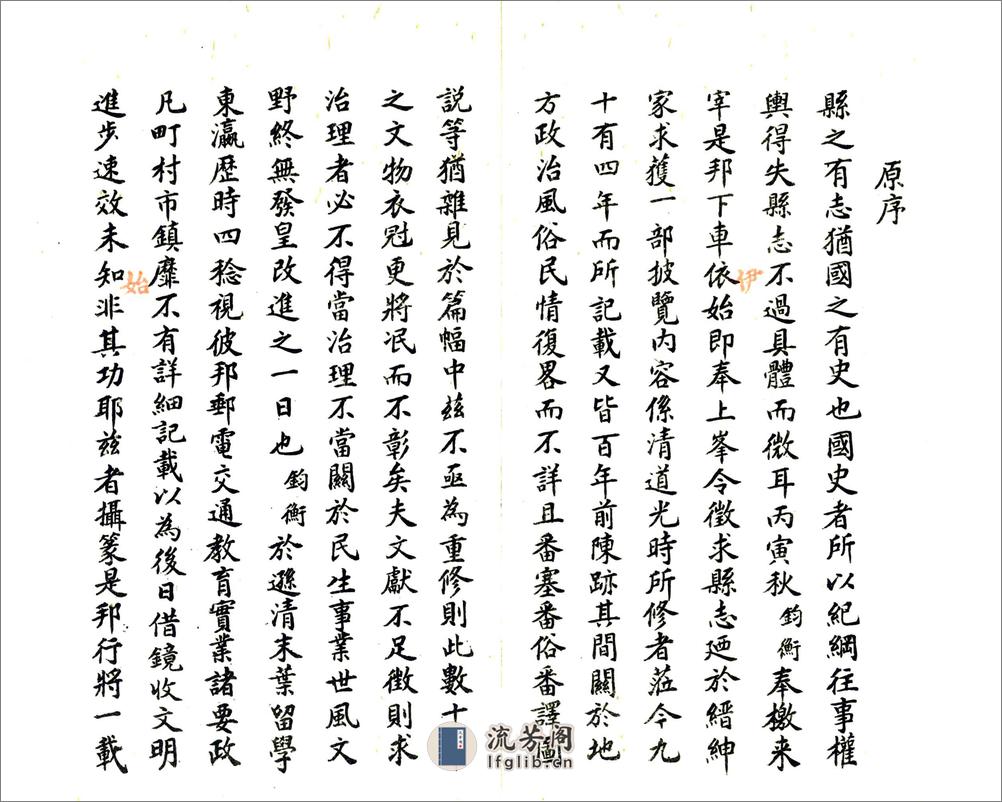 原序
縣之有志猶國之有史也國史者所以紀綱往事權
輿得失縣志不過具體而微耳丙寅秋鈞衡奉檄来
宰是邦下車依始即奉上峯令徵求縣志廼於縉紳
伊
家求獲一部披覽内容係清道光時所修者蒞今九
十有四年而所記載又皆百年前陳跡其間關於地
方政治風俗民情復畧而不詳且番塞番俗番譯
說等猶雜見於篇幅中玆不亟為重修則此數十
之文物衣冠更將泯而不彰矣夫文獻不足徵則求
治理者必不得當治理不當關於民生事業世風文
野終無發皇改進之一日也鈞衡於遜清末葉留學
東瀛歷時四稔視彼邦郵電交通教育實業諸要政
凡町村市鎮靡不有詳細記載以為後日借鏡收文明
進步速效未知非其功耶玆者攝篆是邦行將一載
始
流芳阁
lfglib.cn